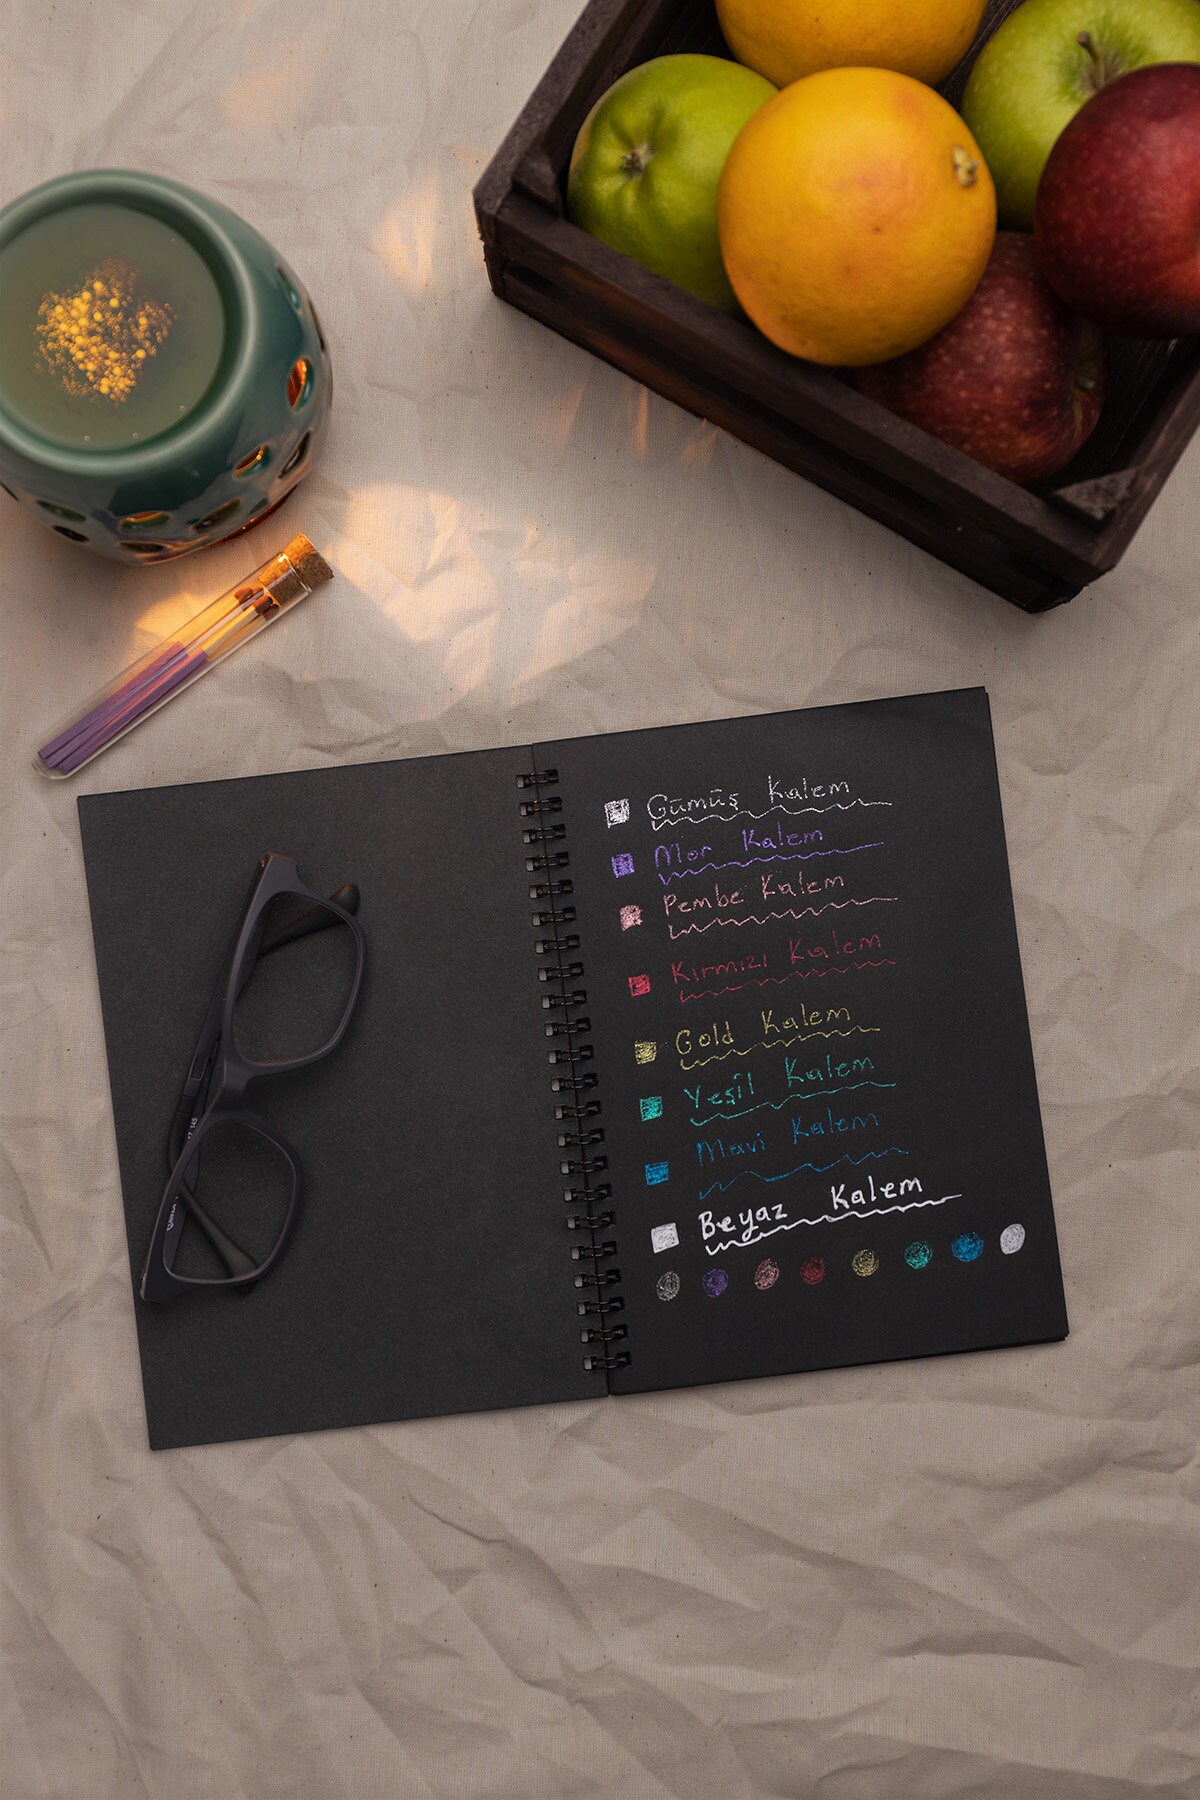 Gümüş Kalem
Mor Kalem
Pembe Kalem
Kırmızı Kalem
Gold Kalem
Yeşil Kalem
Mavi Kalem
Beyaz Kalem